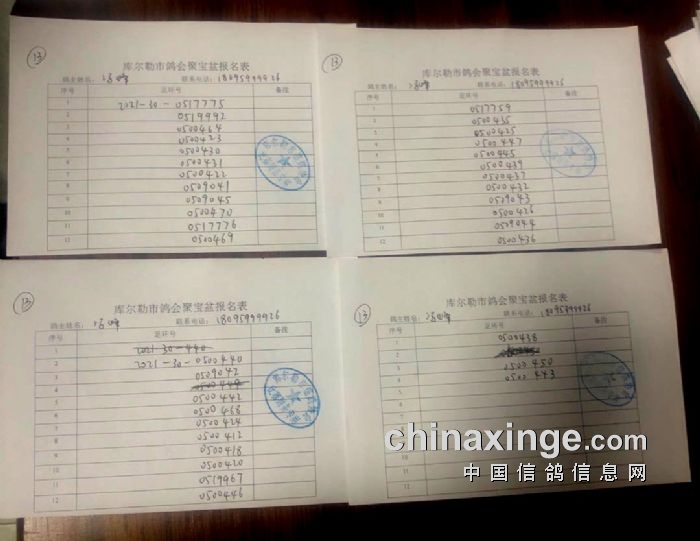 13
库尔勒市鸽会聚宝盆报名表
鸽主姓名： 联系电话：18095999926
序号 足环号 备注
1 2021-30-0517775
2 0519992
3 0500464
4 0500423
5 0500430
6 0500431
7 0500422
8 0509041
9 0509045
10 0500470
11 0517776
12 0500469
13
库尔勒市鸽会聚宝盆报名表
鸽主姓名： 联系电话：18095999926
序号 足环号 备注
1 0517759
2 0500435
3 0500425
4 0500447
5 0500445
6 0500439
7 0500437
8 0500432
9 0509043
10 0500426
11 0509044
12 0500436
13
库尔勒市鸽会聚宝盆报名表
鸽主姓名： 联系电话：18095999926
序号 足环号 备注
1 2021-30-440
2 2021-30-0500440
3 0509042
4
5 0500442
6 0500468
7 0500424
8 0500412
9 0500418
10 0500420
11 0519967
12 0500446
13
库尔勒市鸽会聚宝盆报名表
鸽主姓名： 联系电话：18095999926
序号 足环号 备注
1 0500438
2
3 0500450
4 0500443
5
6
7
8
9
10
11
12
chinaxinge.com
中国信鸽信息网